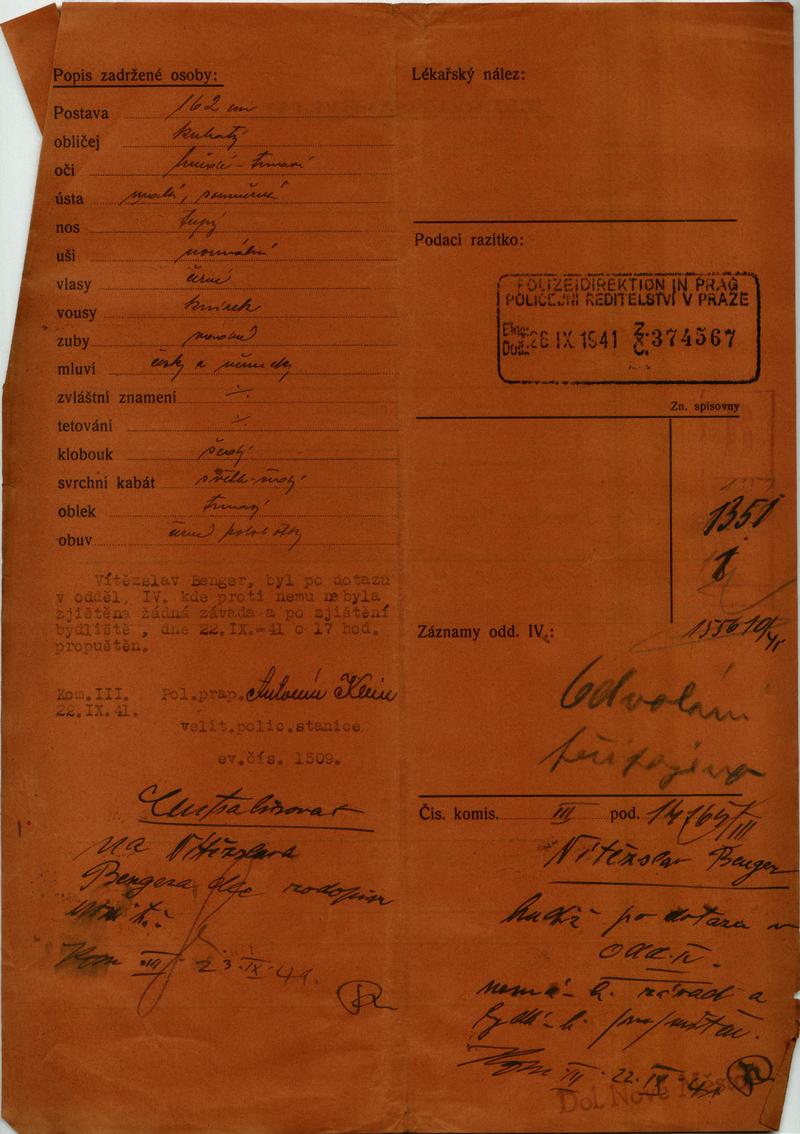 Popis zadržené osoby:
Postava 162 cm
obličej kulatý
oči hnědé - tmavé
ústa malá, souměrná
nos tupý
uši normální
vlasy černé
vousy knírek
zuby
mluví česky a německy
zvláštní znamení ·/·
tetování ·/·
klobouk šedý
svrchní kabát světle-šedý
oblek tmavý
obuv černé polobotky
Vítězslav Benger, byl po dotazu
v odděl, IV. kde proti nemu nebyla
zjištěna žádná závada a po zjištění
bydliště , dne 22.IX.-41 o 17 hod.
propuštěn.
Kom.III. Pol.prap. Antonín Klein
22.IX.41.
velit.polic.stanice
ev.čís. 1509.
Centralisovat
na Vítězslava
Bengera dle rodopisu
Kom III 23.IX.41.
R
Lékařský nález:
Podací razítko:
POLIZEIDIREKTION IN PRAG
POLICEJNÍ ŘEDITELSTVÍ V PRAZE
Eing:
Doš: 26 IX 1941 Z. Č. 374567
Zn. spisovny
1351
1
15561041
Záznamy odd. IV.:
Odvolání
připojeno
Čís. komis. III pod. 14765/III
Vítězslav Benger
budiž po dotazu v
odd. IV.
nemá-li závad a
bydlí-li propuštěn.
Kom III. 22.IX 41
R
Dol. Nové Město